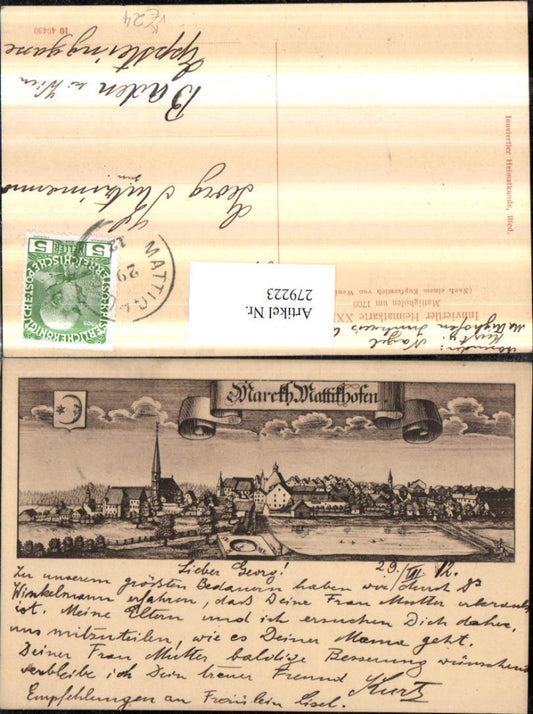 10 40430
Z24
Baden bei Wien
Georg
Innviertler Heimatkunde, Ried.
Innviertler Heimatkarte XX
Mattighofen um 1700
(Nach einem Kupferstich von
5 5
MATTIG
29
12
Artikel Nr.
279223
Marckh Mattikhofen
29/III 12.
Lieber Georg!
Zu unserem größten Bedauern haben wir durch
Winkelmann erfahren, daß Deine Frau Mutter erkrankt
ist. Meine Eltern und ich ersuchen Dich daher,
uns mitzuteilen, wie es Deiner Mama geht.
Deiner Frau Mutter baldige Besserung wünschend
verbleibe ich Dein treuer Freund Kurt
Empfehlungen an Fräulein Lisel.